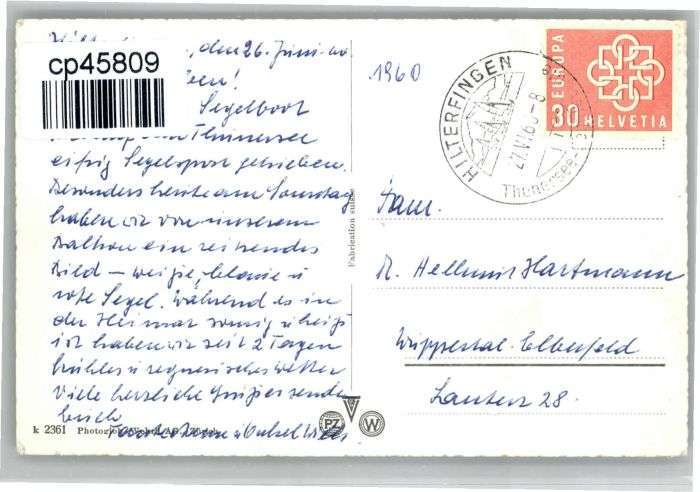 den 26. Juni 60
cp45809
Segelboot
Thunersee
eifrig Segelsport getrieben.
Besonders heute am Sonntag
haben wir von unserem
Balkon ein reizendes
Bild – weiße, blaue u
rote Segel. Während es in
der Heimat sonnig u heiß
ist haben wir seit 2 Tagen
kühles u regnerisches Wetter
Viele herzliche Grüße sende
Euch
k 2361 Photo AG.
Fabrication suisse
PZ W
1960
HILTERFINGEN
27.VI.60-8
Thunersee
EUROPA
30 HELVETIA
Fam.
Hellmut Hartmann
Wuppertal-Elberfeld
28.